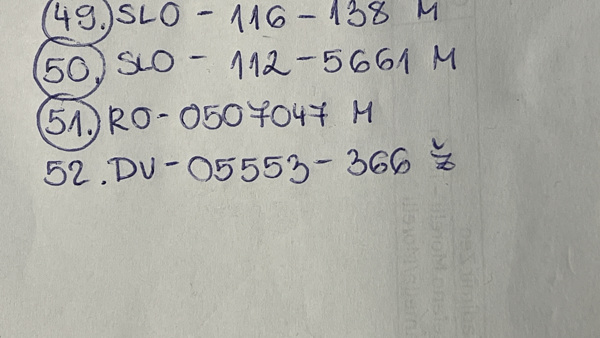 49. SLO - 116 - 138 M
50. SLO - 112-5661 M
51. RO-0507047 M
52. DV-05553-366 Ž